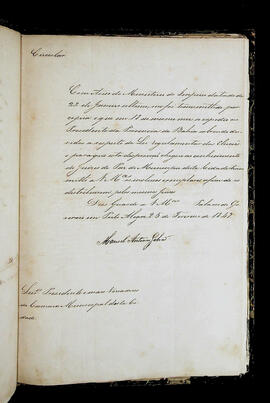 Circular
Com Aviso do Ministerio do Imperio datado de
22 de Janeiro ultimo, me foi transmittido por
copia o que em 18 do mesmo mez se expedio ao
Presidente da Provincia da Bahia sobre du-
vidas a respeito da Lei regulamentar das Eleições
e para que esta disposição chegue ao conhecimento
dos Juizes de Paz do Municipio desta Cidade
a V. Mces exemplares afim de os
distribuirem pelos mesmos Juizes
Deos Guarde a V. Mces Palacio do Go-
verno em Porto Alegre 23 de Fevereiro de 1847
Manoel Antonio Galvão
Snrs. Presidente e mais Vereadores
da Camara Municipal desta Ci-
dade.